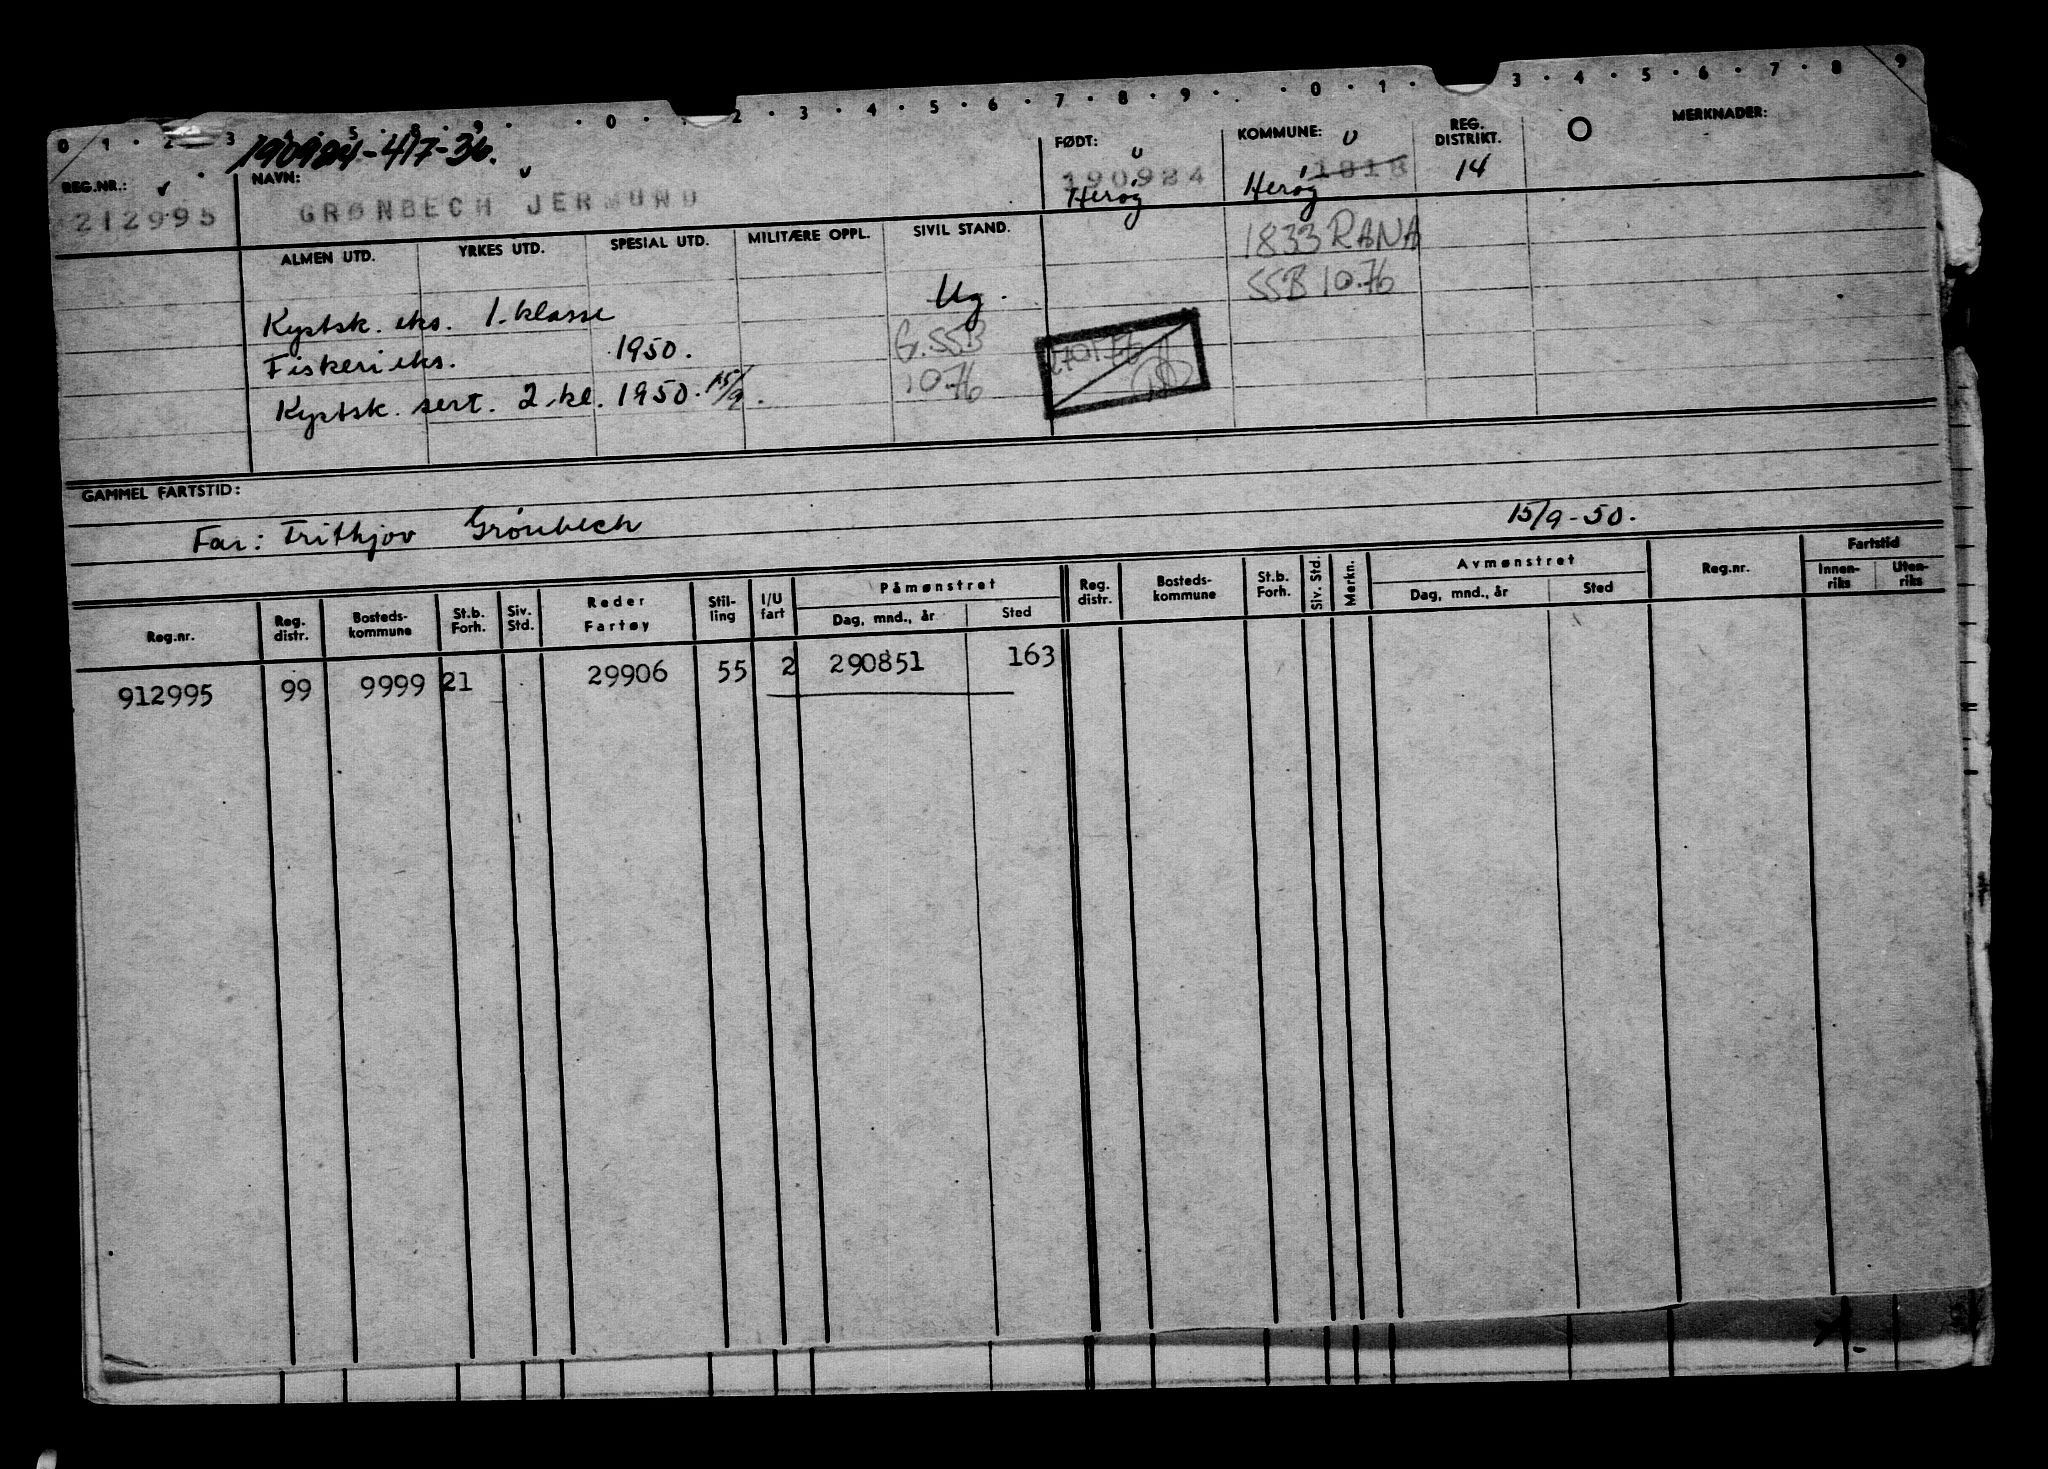 0 1 · 2 · 3 · 5 · 8 · 9 · · 0 · · 2 · 3 · 4 · 5 · 6 · 7 · 8 · 9 · · 0 · 1 · 3 · 4 · 5 · 6 · 7 · 8 9
190924-417-36.
REG.NR.: NAVN: FØDT: KOMMUNE: REG. DISTRIKT. MERKNADER:
212995 GRØNBECH JERMUND 190924 1818 14
Herøy Herøy
ALMEN UTD. YRKES UTD. SPESIAL UTD. MILITÆRE OPPL. SIVIL STAND.
1833 RANA
SSB 10.76
Kystsk. eks. 1. klasse Ug.
Fiskerieks. 1950. G. SSB
Kystsk. sert. 2. kl. 1950. 15/9. 10.76
GAMMEL FARTSTID:
Far: Frithjov Grönbech 15/9-50.
Reg.nr. Reg. distr. Bosteds-kommune St.b. Forh. Siv. Std. Reder Fartøy Stil-ling I/U fart Påmønstret Dag, mnd., år Sted Reg. distr. Bosteds-kommune St.b. Forh. Siv. Std. Merkn. Avmønstret Dag, mnd., år Sted Reg.nr. Fartstid Innen-riks Uten-riks
912995 99 9999 21 29906 55 2 290851 163